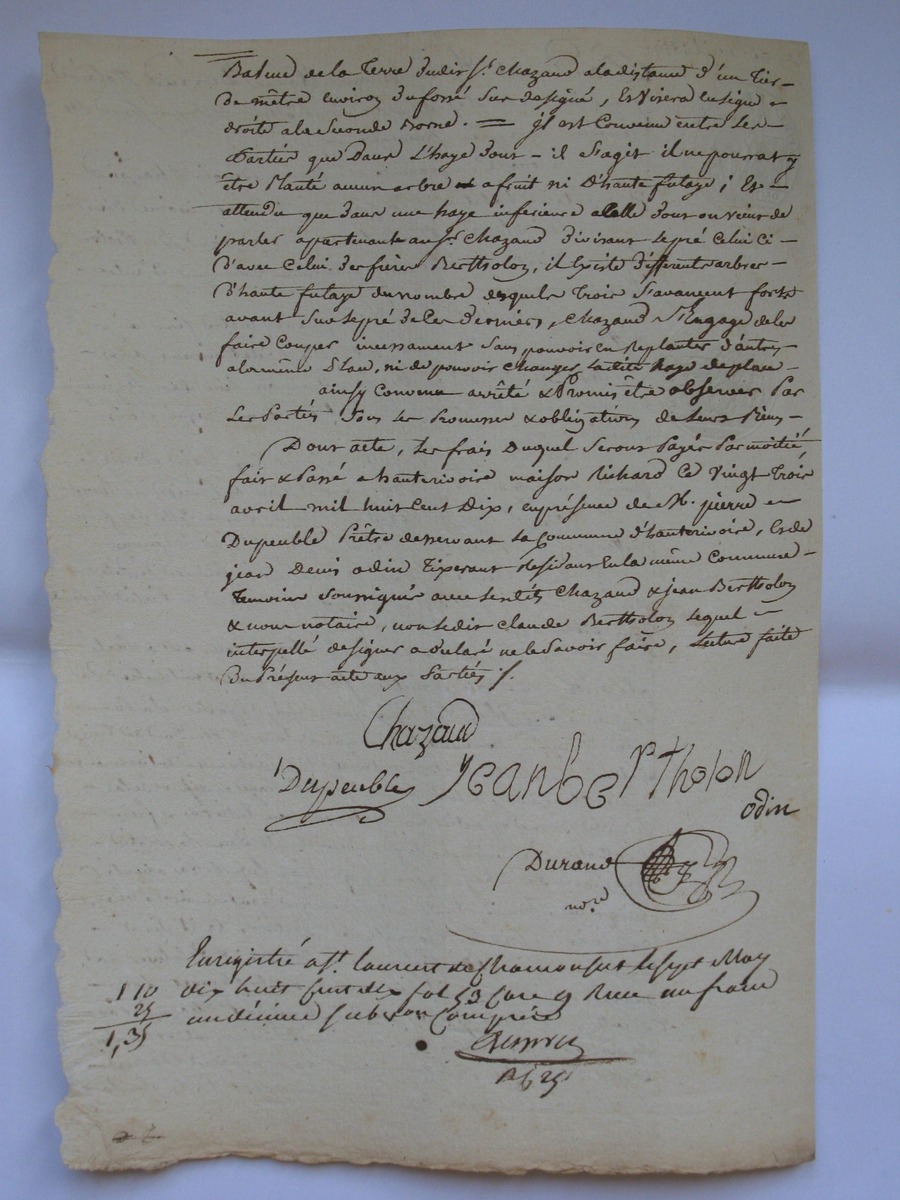 Balme de la Terre dudit Sr. Chazaud a la distance d'un tier
de mêtre environ du fossé Sus designé, Et Visera en ligne
droite a la Seconde Borne. = il est Convenu entre les
Parties que Dans l'haye dont il s'agit il ne pourrat y
être Planté aucun arbre a fruit ni D'haute futaye; Et
attendu que dans une haye inferieure a Celle dont on vient de
parler appartenante au Sr. Chazaud divisant le pré Celui Ci
d'avec Celui des freres Bertholon, il Existe differents arbres
D'haute futaye du nombre desquels trois s'avancent forts
avant Sur le pré de Ces derniers, Chazaud s'Engage de les
faire Couper incessament Sans pouvoir en Replanter d'autres
a la même Place, ni de pouvoir Changer la dite haye de place
ainsy Convenu arrêté & Promis être observer Par
Les Parties Sous les Promesses & obligations de Leurs Biens
Dont acte, les frais Duquel Seront Payés Par moitié,
fait & Passé a hauterivoire maison Richard Ce Vingt Trois
avril mil huit Cent Dix, en présence de M. pierre
Dupeuble Prêtre desservant la Commune d'hauterivoire, Et de
jean Denis odin Tixerant Residant En la même Commune
Temoins Soussignés avec les dits Chazaud & jean Bertholon
& nous notaire, non ledit Claude Bertholon lequel
interpellé de signer a déclaré ne le Savoir faire, lecture faite
Du Présent acte aux Parties /.
Chazaud
Dupeuble Jean berTholon
odin
Durand
nore
Enregistré a St. laurent de Chamousset le sept May
1 10 dix huit cent dix fol 53 Care 9 Reçu un franc
25 un décime subvon Compris
1,35